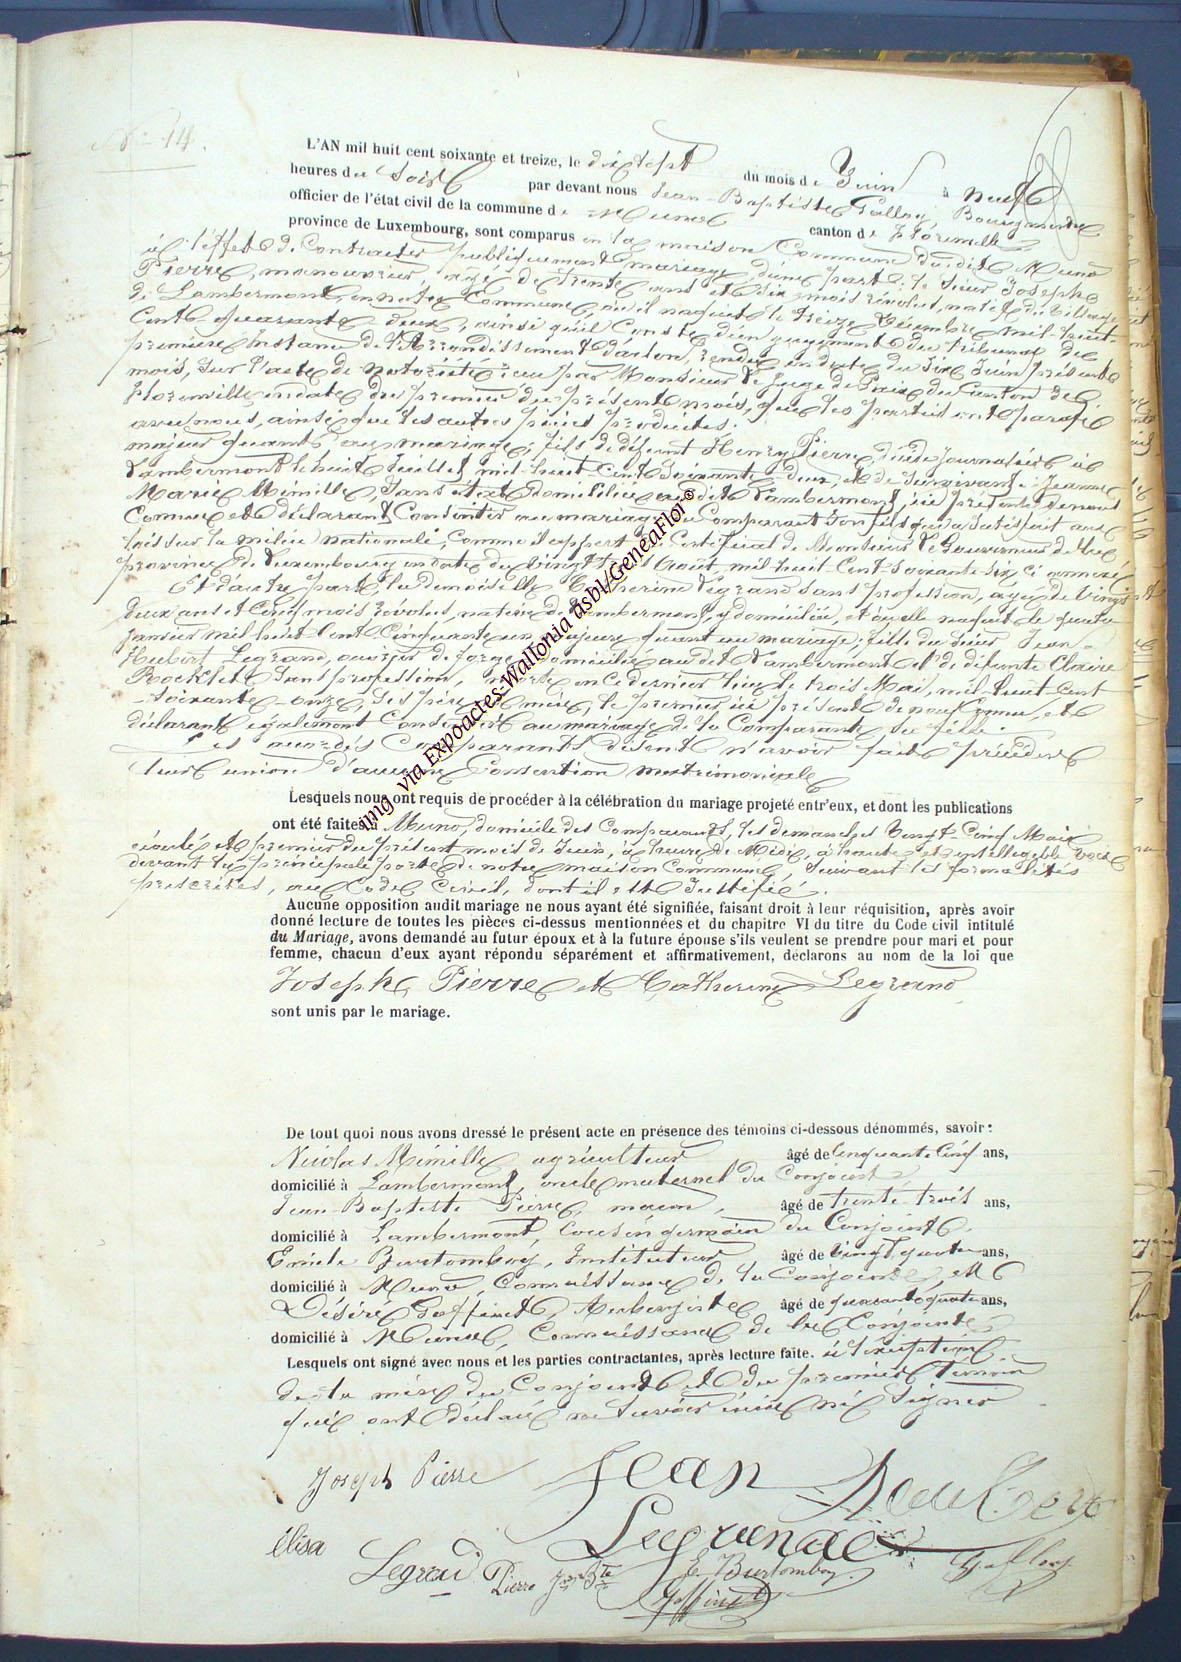 N° 14.
L'AN mil huit cent soixante et treize, le dix sept du mois de Juin à neuf
heures du Soir par devant nous Jean-Baptiste Bourgmestre
officier de l'état civil de la commune de Muno canton de Florenville
province de Luxembourg, sont comparus en la maison Commune du dit Muno
à l'effet de Contracter publiquement mariage, d'une part: le Sieur Joseph
Pierre, manouvrier, agé de trente ans et Six mois révolus, natif du Village
de Lambermont, en notre Commune, où il naquit le treize Décembre mil-huit-
Cent quarante deux, ainsi qu'il Conste d'un jugement du tribunal de
première Instance de l'Arrondissement d'arlon, rendu en date du Six Juin présent
mois, Sur l'acte de notoriété reçu par Monsieur le Juge de Paix du Canton de
Florenville en date du premier du présent mois, que les parties ont parafé
avec nous, ainsi que les autres pièces produites.
majeur quant au mariage, fils de défunt Henry Pierre, Journalier à
Lambermont le huit Juillet mil-huit Cent Soixante-deux, et de Survivante Jeanne
Marie Mimille, Sans état domiciliée au dit Lambermont, ici présente de nous
Connue et déclarant Consentir au mariage du Comparant Son fils qui a Satisfait aux
lois sur la milice nationale, Comme il appert du Certificat de Monsieur le Gouverneur de la
province de Luxembourg en date du vingt août mil-huit-Cent-soixante-six, ci annexé
Et d'autre part, la demoiselle Catherine Legrand sans profession, agée de vingt
deux ans et Cinq mois révolus, native de Lambermont, y domiciliée, et où elle naquit le quatre
Janvier mil huit Cent Cinquante un, majeure quant au mariage, fille du Sieur Jean-
Hubert Legrand, ouvrier de forge, domicilié au dit Lambermont et de défunte Claire
Sans profession, morte en ce dernier lieu le trois Mai mil-huit Cent
-soixante-onze, Ses père et mère, le premier ici présent de nous Connu, et
déclarant également Consentir au mariage de la Comparante Sa fille.
Comparants disent n'avoir fait précéder
leur union d'aucune Convention matrimoniale
Lesquels nous ont requis de procéder à la célébration du mariage projeté entr'eux, et dont les publications
ont été faites à Muno, domicile des Comparants, les dimanches Vingt-Cinq Mai
écoulé et premier du présent mois de Juin, à heure de Midi, à haute et intelligible voix
devant la principale porte de notre maison Commune, Suivant les formalités
prescrites, au Code Civil, dont il est Justifié.
Aucune opposition audit mariage ne nous ayant été signifiée, faisant droit à leur réquisition, après avoir
donné lecture de toutes les pièces ci-dessus mentionnées et du chapitre VI du titre du Code civil intitulé
du Mariage, avons demandé au futur époux et à la future épouse s'ils veulent se prendre pour mari et pour
femme, chacun d'eux ayant répondu séparément et affirmativement, déclarons au nom de la loi que
Joseph Pierre et Catherine Legrand
sont unis par le mariage.
De tout quoi nous avons dressé le présent acte en présence des témoins ci-dessous dénommés, savoir:
Nicolas Mimille agriculteur âgé de Cinquante Cinq ans,
domicilié à Lambermont, oncle maternel du Conjoint
Jean-Baptiste Pierre, maçon, âgé de trente trois ans,
domicilié à Lambermont, Cousin germain du Conjoint.
Emile Burtomboy, Instituteur âgé de Vingt quatre ans,
domicilié à Muno, Connaissance de la Conjointe, et
Désiré Goffinet, Aubergiste âgé de quarante quatre ans,
domicilié à Muno, Connaissance de la Conjointe
Lesquels ont signé avec nous et les parties contractantes, après lecture faite. à l'exception
de la mère du Conjoint et du premier témoin
qui ont déclaré ne Savoir écrire ni Signer
Joseph Pierre Jean Hubert
élisa Legrand
Legrand Pierre Jn Bte E. Burtomboy
Goffinet
img via Expoactes-Wallonia asbl/GeneaFlor©